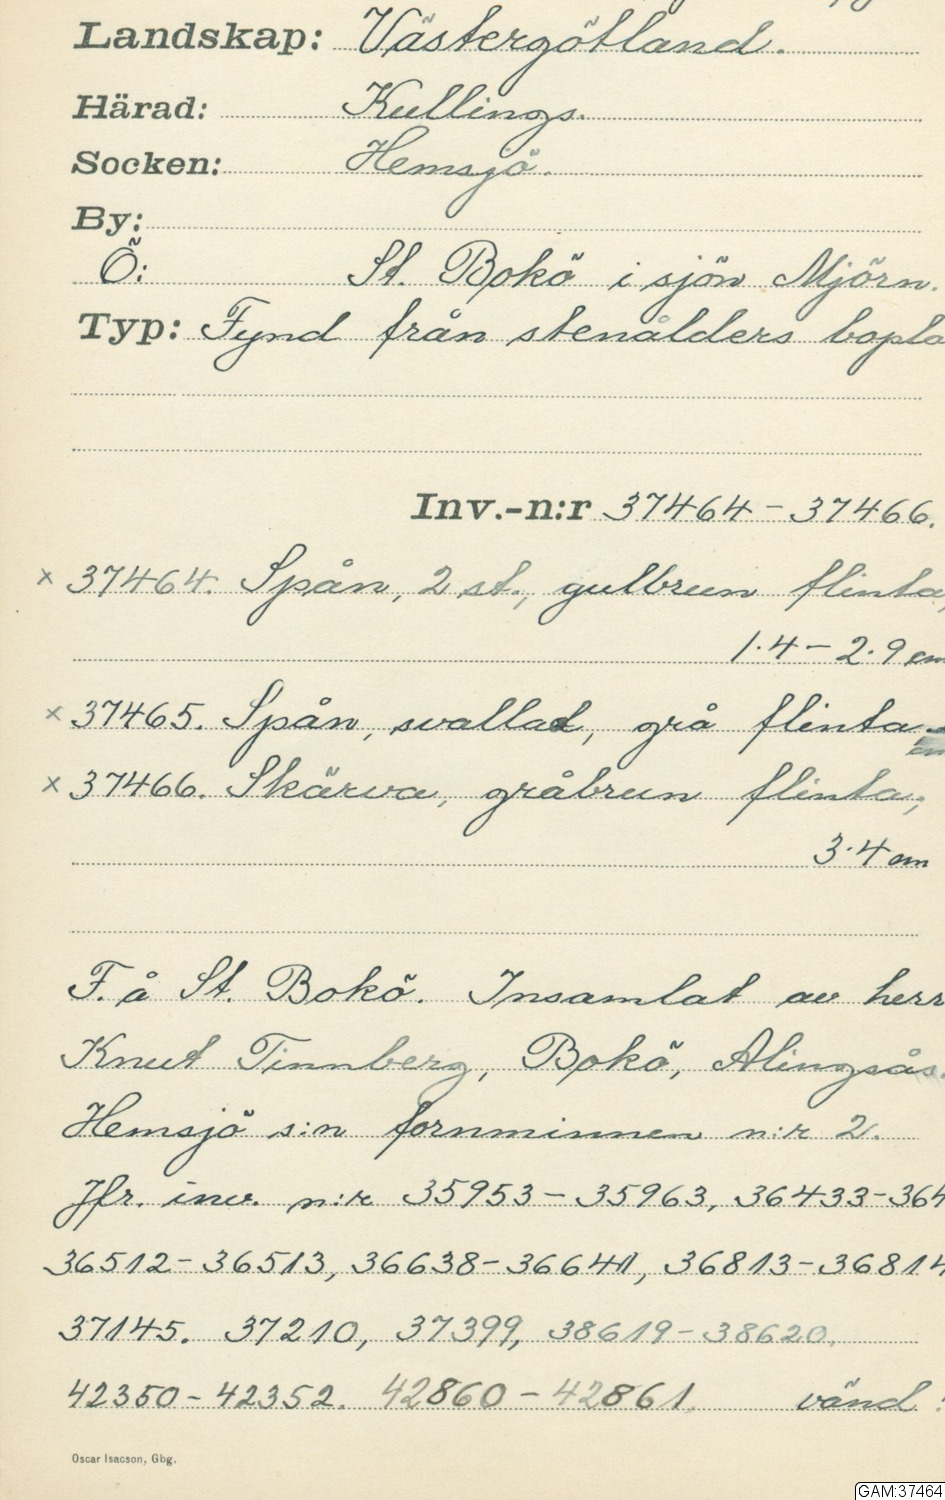 Landskap: Västergötland.
Härad: Kullings.
Socken: Hemsjö.
By:
Ö: St. Bokö i sjön Mjörn.
Typ: Fynd från stenålders bopla
Inv.-n:r 37464-37466.
x 37464. Spån, 2 st., gulbrun flinta,
1.4-2.9 cm
x 37465. Spån, svallad, grå flinta
x 37466. Skärva, gråbrun flinta,
3.4 cm
F. å St. Bokö. Insamlat av herr
Knut Tinnberg, Bokö, Alingsås.
Hemsjö s:n fornminnen n:r 2.
Jfr. inv. n:r 35953-35963, 36433-364
36512-36513, 36638-36641, 36813-36814
37145. 37210, 37399, 38619-38620.
42350-42352. 42860-42861. vänd!
Oscar Isacson, Gbg.
GAM:37464